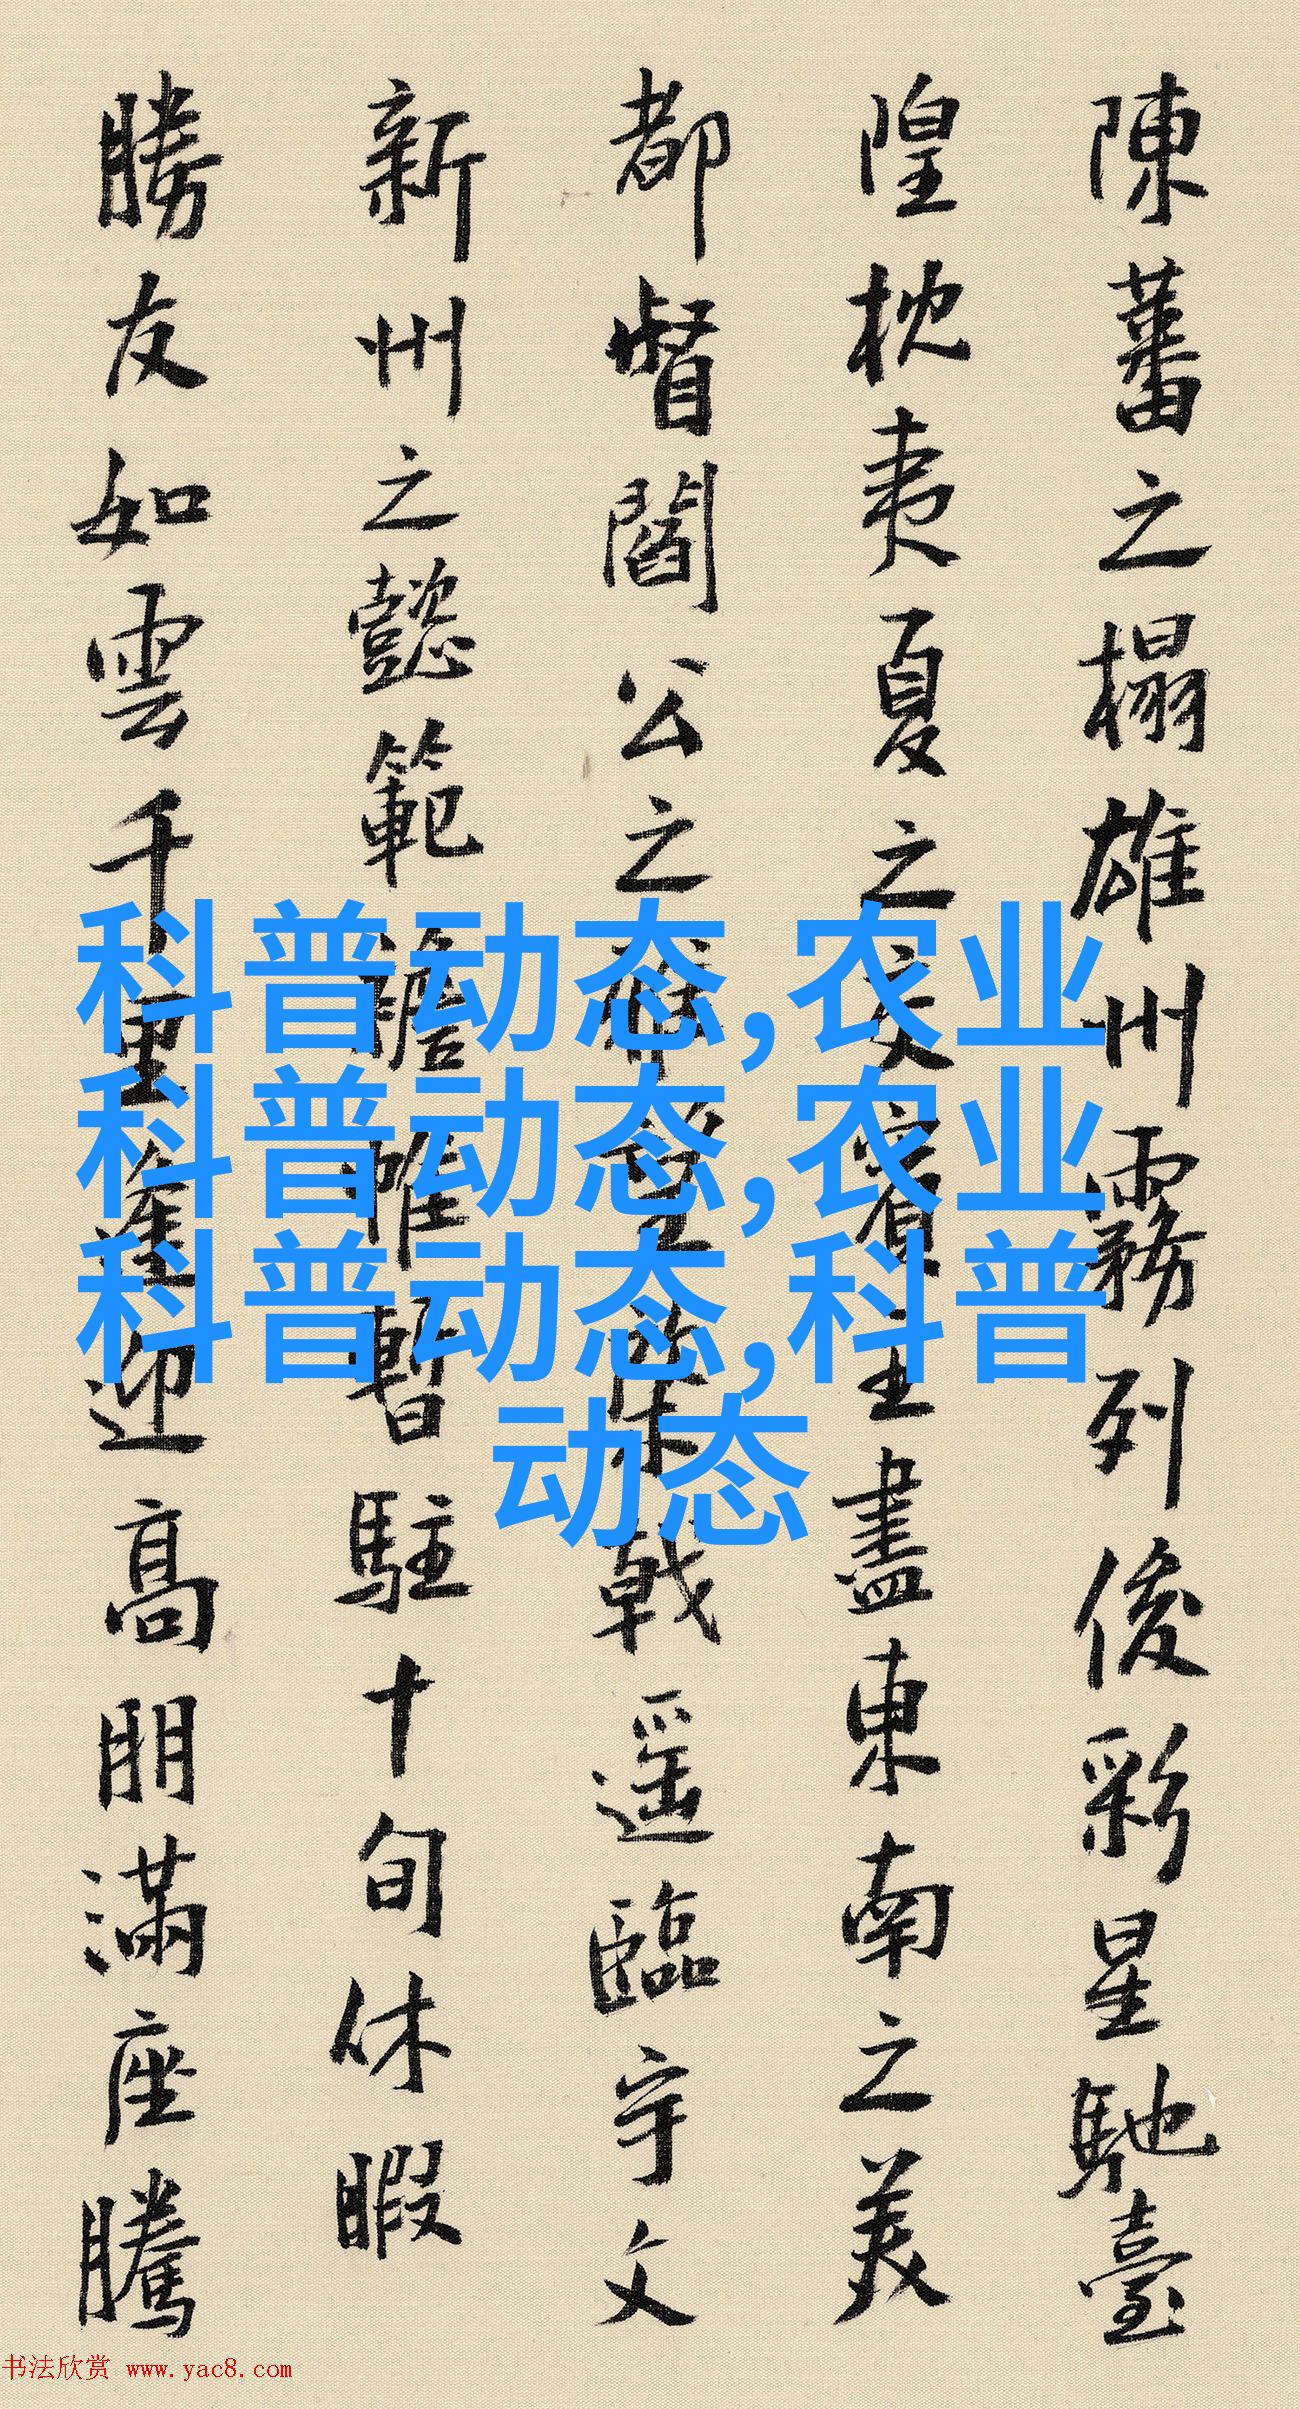 陳蕃之榻雄州霧列俊彩星馳臺
隍枕夷夏之交賓主盡東南之美
都督閻公之雅望棨戟遥臨宇文
新州之懿範襜帷暫駐十旬休暇
勝友如雲千里逢迎高朋滿座騰
科普动态,农业
科普动态,农业
科普动态,科普
动态
书法欣赏 www.yac8.com